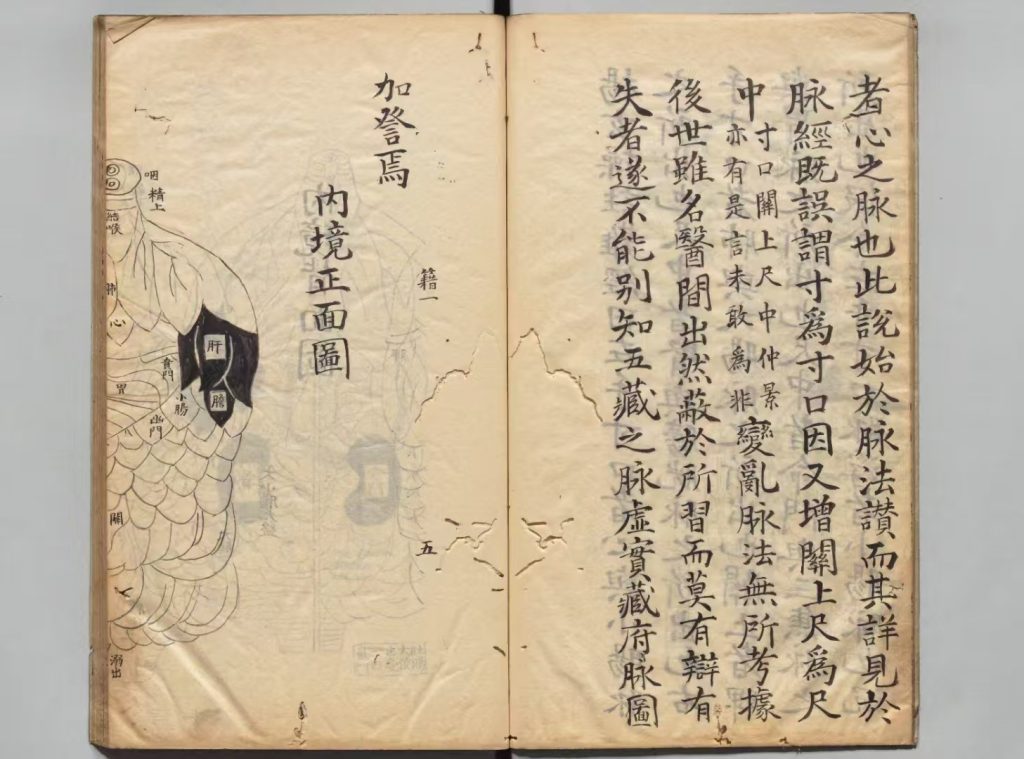 者心之脉也此說始於脉法讃而其詳見於
脉經既誤謂寸爲寸口因又增關上尺爲尺
中
寸口關上尺中仲景
亦有是言未敢爲非
變亂脉法無所考據
後世雖名醫間出然蔽於所習而莫有辯有
失者遂不能别知五藏之脉虛實藏府脉圖
加詧焉
内境正面圖
籍一
五
咽
精上
結喉
肺
心
肝
膽
賁門
胃
小腸
幽門
關
溺出